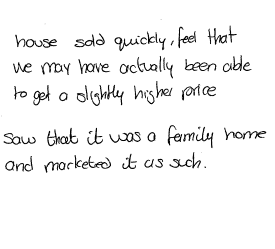 house sold quickly, feel that
we may have actually been able
to get a slightly higher price
saw that it was a family home
and marketed it as such.